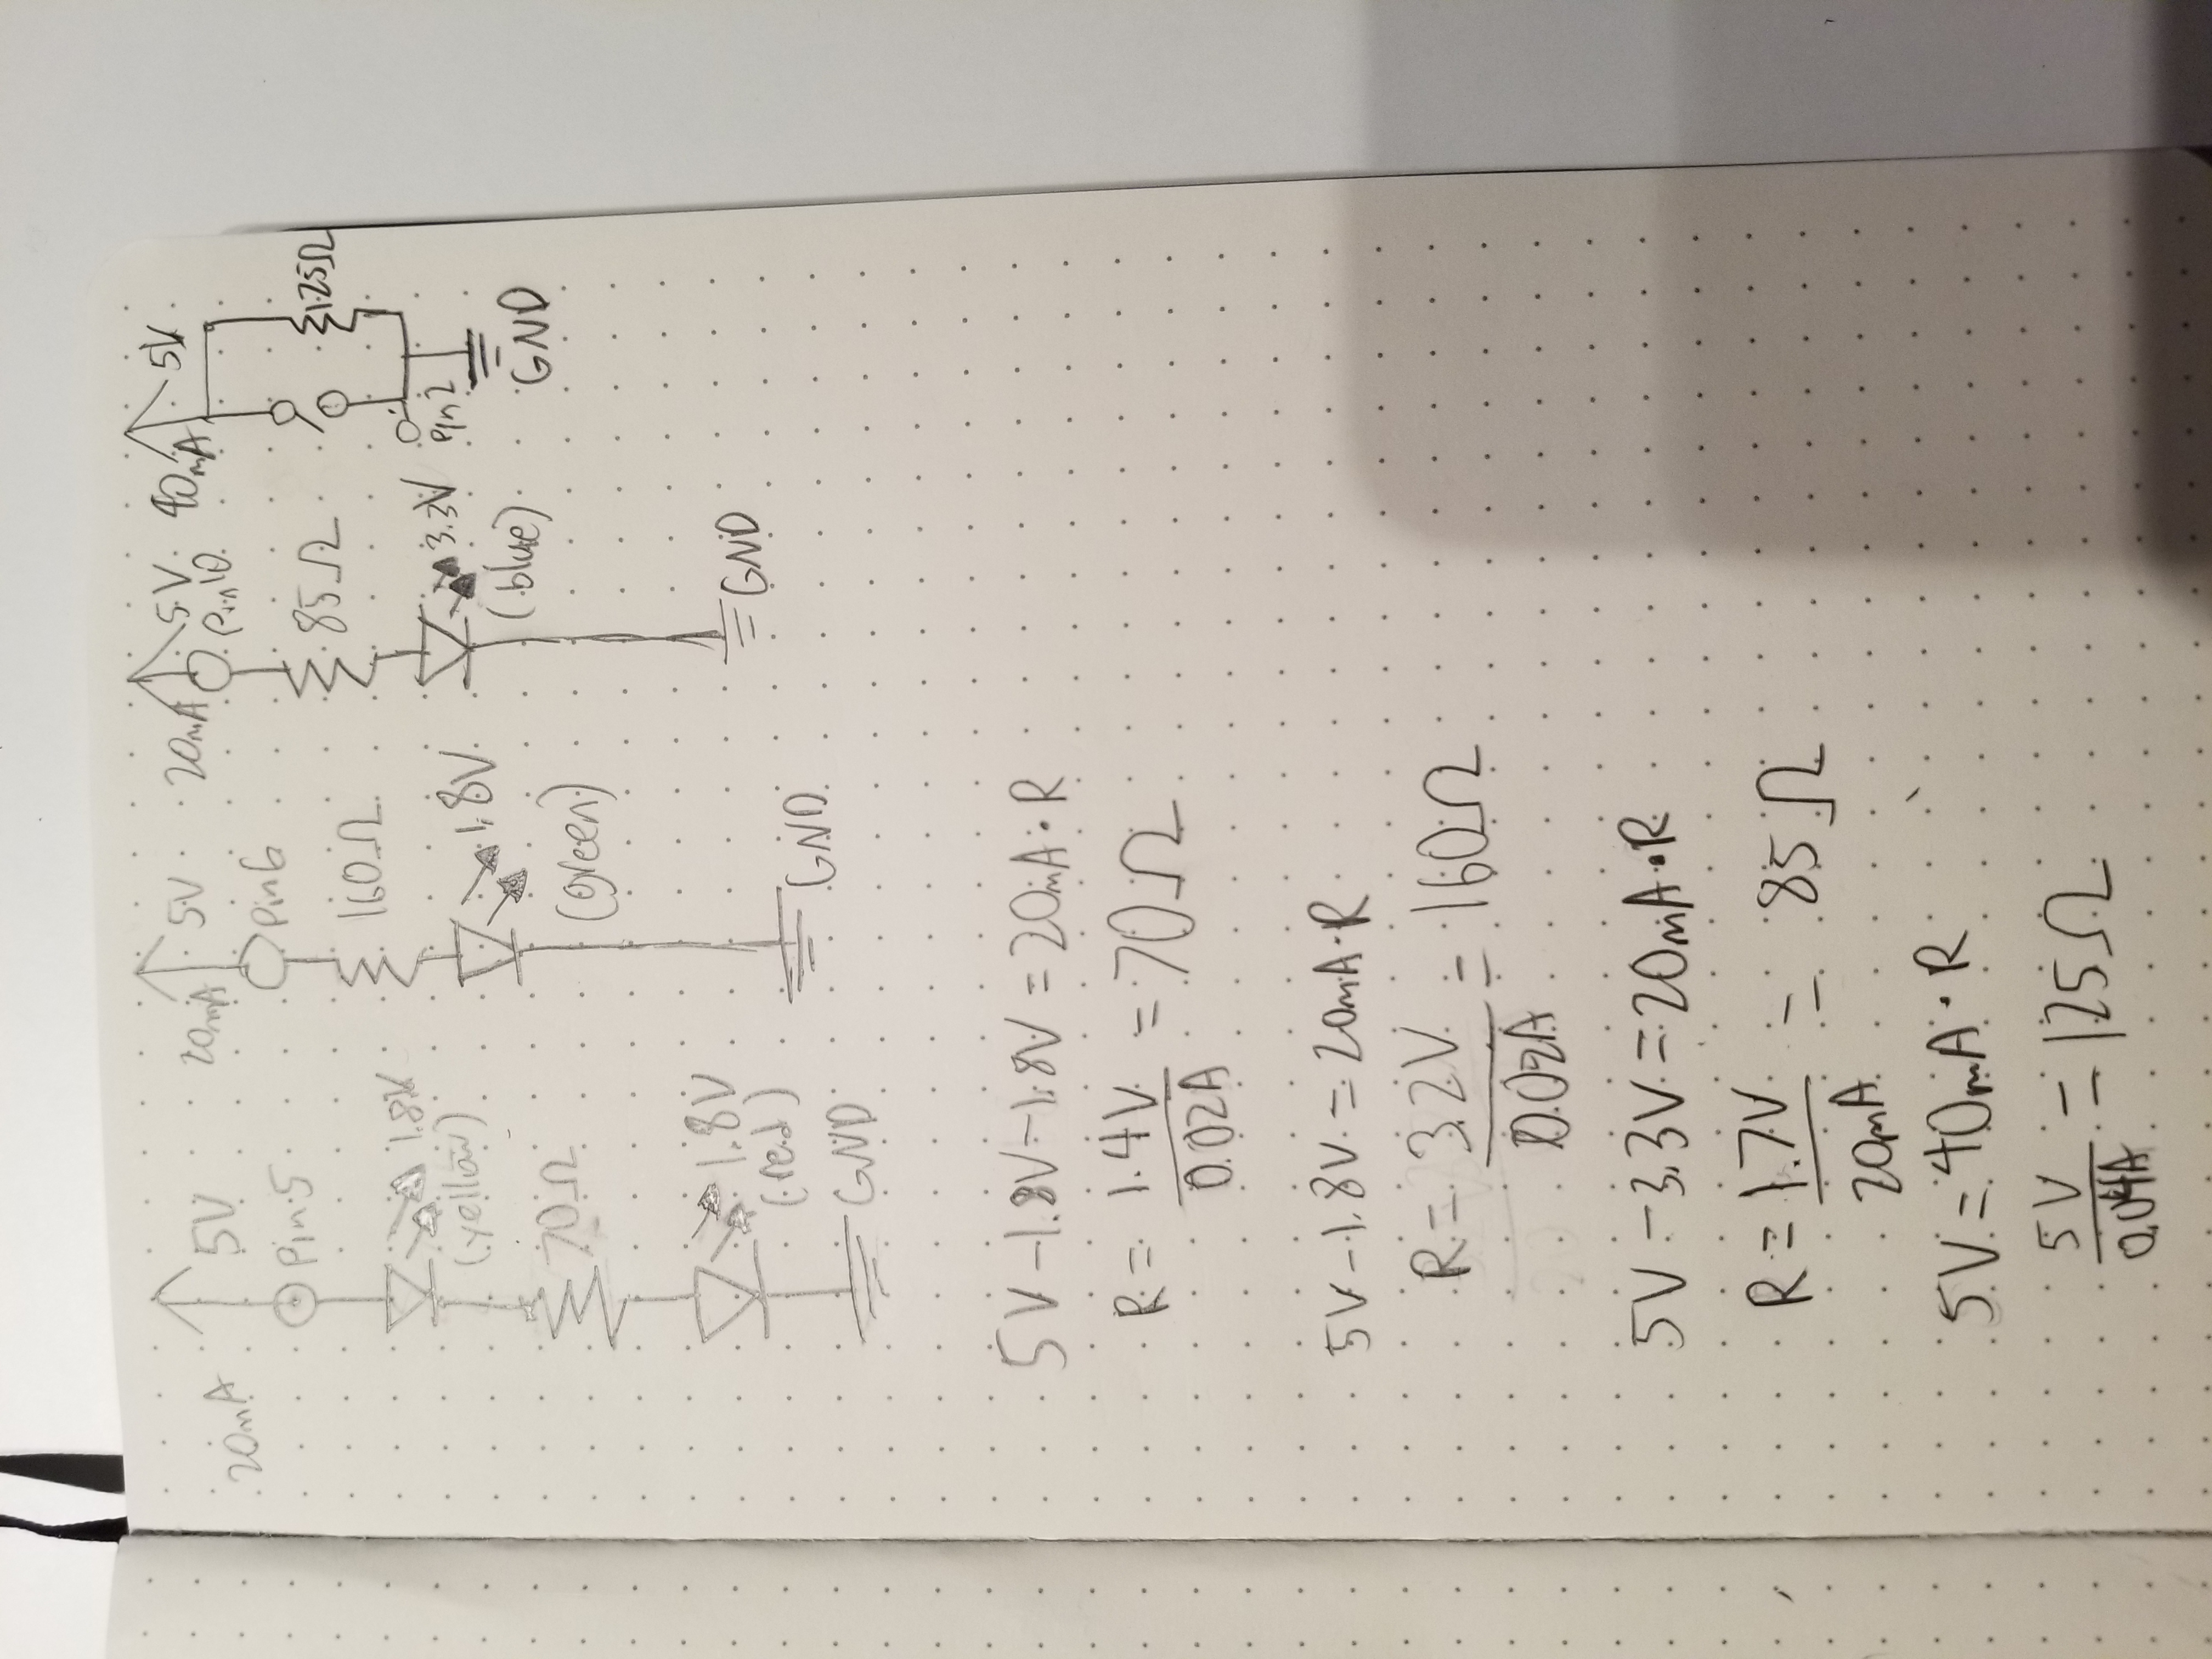 20mA
5V
Pin 5
1.8V
(yellow)
70Ω
1.8V
(red)
GND
20mA
5V
Pin 6
160Ω
1.8V
(green)
GND
20mA
5V
Pin 10
85Ω
3.3V
(blue)
GND
40mA
5V
125Ω
Pin 2
GND
5V - 1.8V - 1.8V = 20mA · R
R = 1.4V / 0.02A = 70Ω
5V - 1.8V = 20mA · R
R = 3.2V / 0.02A = 160Ω
5V - 3.3V = 20mA · R
R = 1.7V / 20mA = 85Ω
5V = 40mA · R
5V / 0.04A = 125Ω